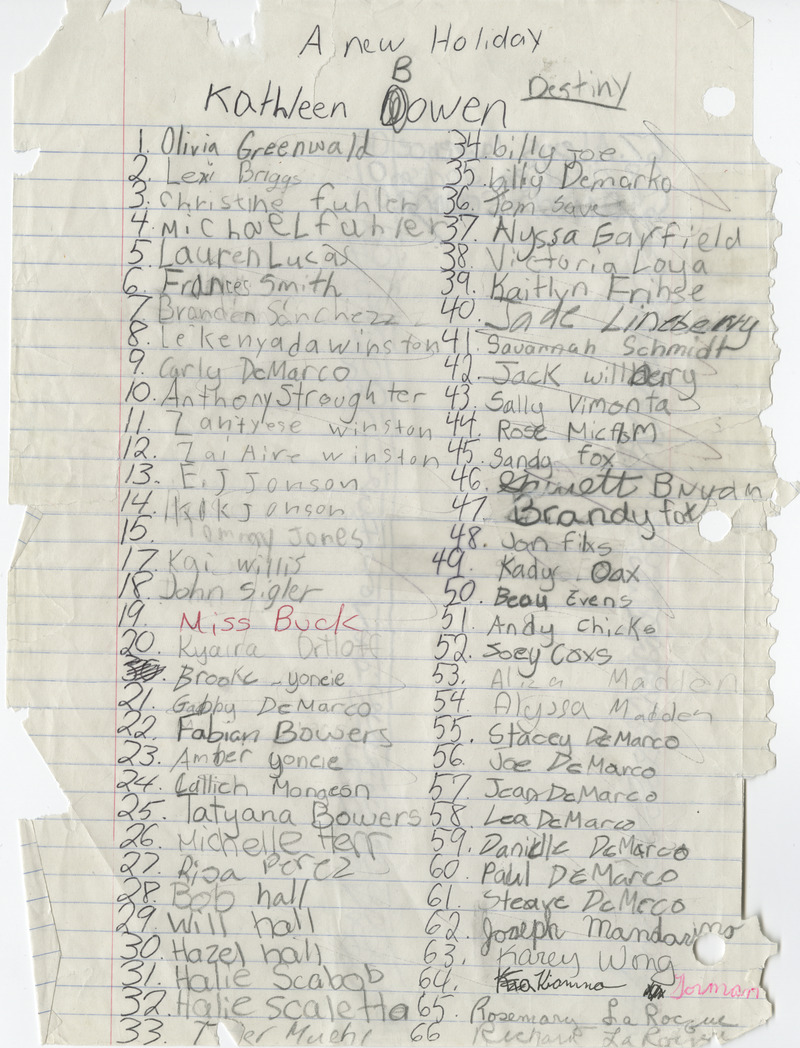 A new Holiday
B
Kathleen Bowen Destiny
1. Olivia Greenwald
2. Lexi Briggs
3. Christine fuhler
4. Michael fuhler
5. Lauren Lucas
6. Frances Smith
7. Branden Sanchezz
8. Leikenyada winston
9. Carly DeMarco
10. Anthony Stroughter
11. Zantyese winston
12. Zai Aire winston
13. E.J Jonson
14. Jonson
15. Tommy Jones
17. Kai willis
18. John Sigler
19. Miss Buck
20. Kyaira Ortloff
Brooke yoncie
21. Gabby DeMarco
22. Fabian Bowers
23. Amber yoncie
24. Mongeon
25. Tatyana Bowers
26. Michelle Herr
27. Risa Perez
28. Bob hall
29. Will hall
30. Hazel hall
31. Halie Scabob
32. Halie scaletta
33. Muehl
34. billy Joe
35. billy Demarko
36. Tom Save
37. Alyssa Garfield
38. Victoria Loya
39. Kaitlyn Frihse
40. Jade Lineberry
41. Savannah Schmidt
42. Jack willberry
43. Sally Vimonta
44. Rose
45. Sandy fox
46. Emmett Bryan
47. Brandy fox
48. Jan fiks
49. Kady Oax
50. Beau Evens
51. Andy Chicks
52. Joey Coxs
53. Aliza Madden
54. Alyssa Madden
55. Stacey DeMarco
56. Joe DeMarco
57. Jean DeMarco
58. Lea DeMarco
59. Danielle DeMarco
60. Paul DEMarco
61. Steave DeMerco
62. Joseph Mandarino
63. Karey Wong
64. Kianna Torman
65. Rosemary LaRocque
66 Richard LaRocque